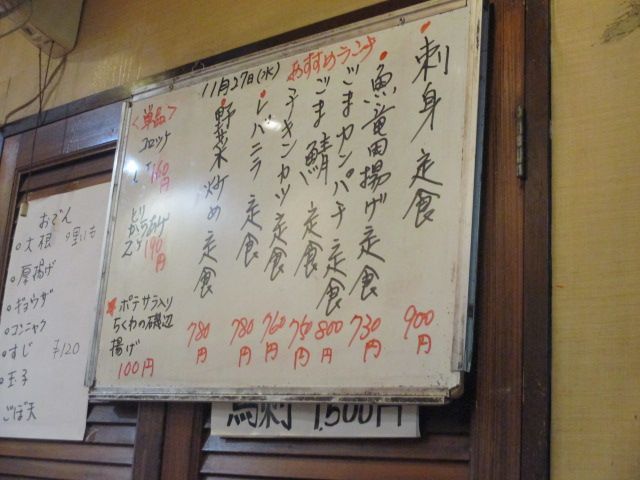 11月27日(水) おすすめランチ
・刺身定食 900円
・魚竜田揚げ定食 730円
・ごまカンパチ定食 800円
ごま鯖定食 750円
チキンカツ定食 760円
・レバニラ定食 780円
・野菜炒め定食 780円
<単品>
コロッケ
160円
とり
からあげ
2ヶ190円
★ポテサラ入り
ちくわの磯辺
揚げ
100円
おでん
○大根
○里いも
○厚揚げ
○ギョウザ
○コンニャク
○すじ ¥120
○玉子
ごぼ天
馬刺 1,500円